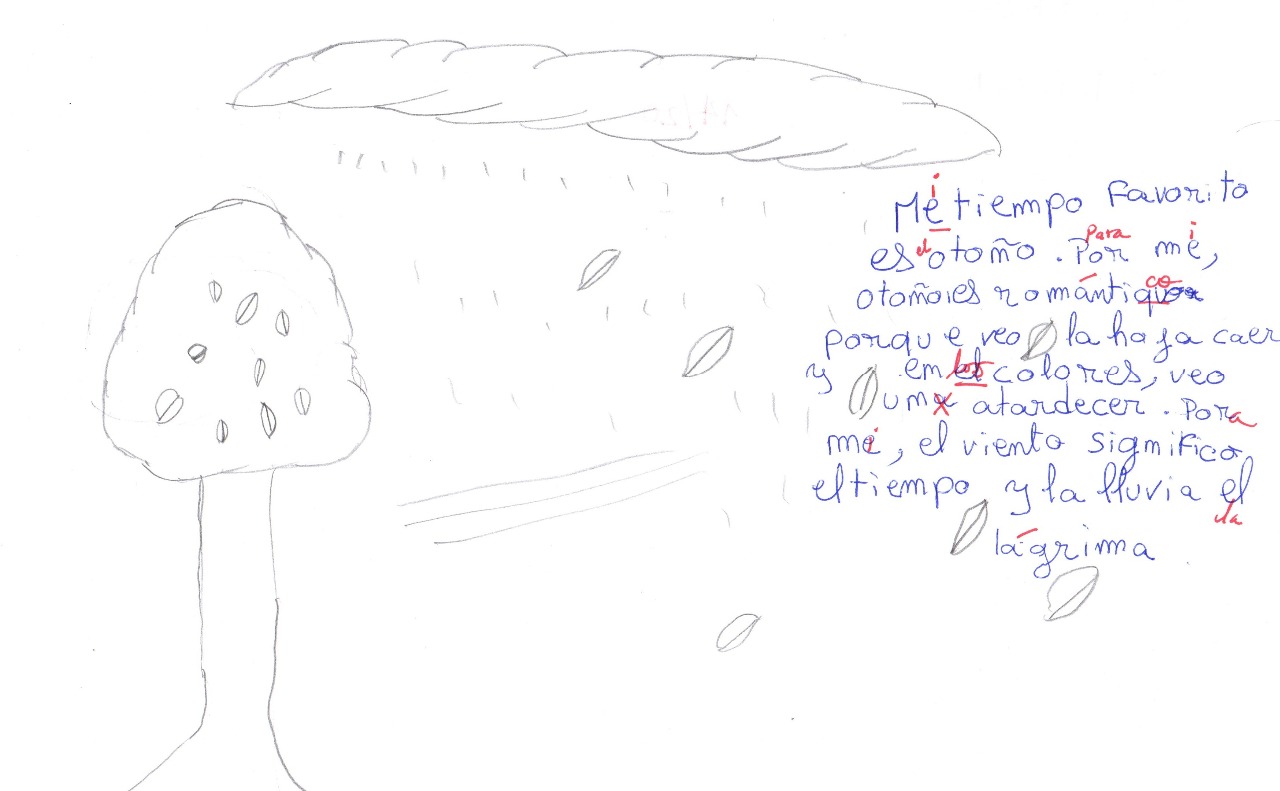 Me i tiempo favorito
es el otoño. Por Para me i,
otoño es romántiquo co
porque veo la hoja caer
y en el los colores, veo
una atardecer. Pora
me i, el viento significa
el tiempo y la lluvia el
la
lágrima